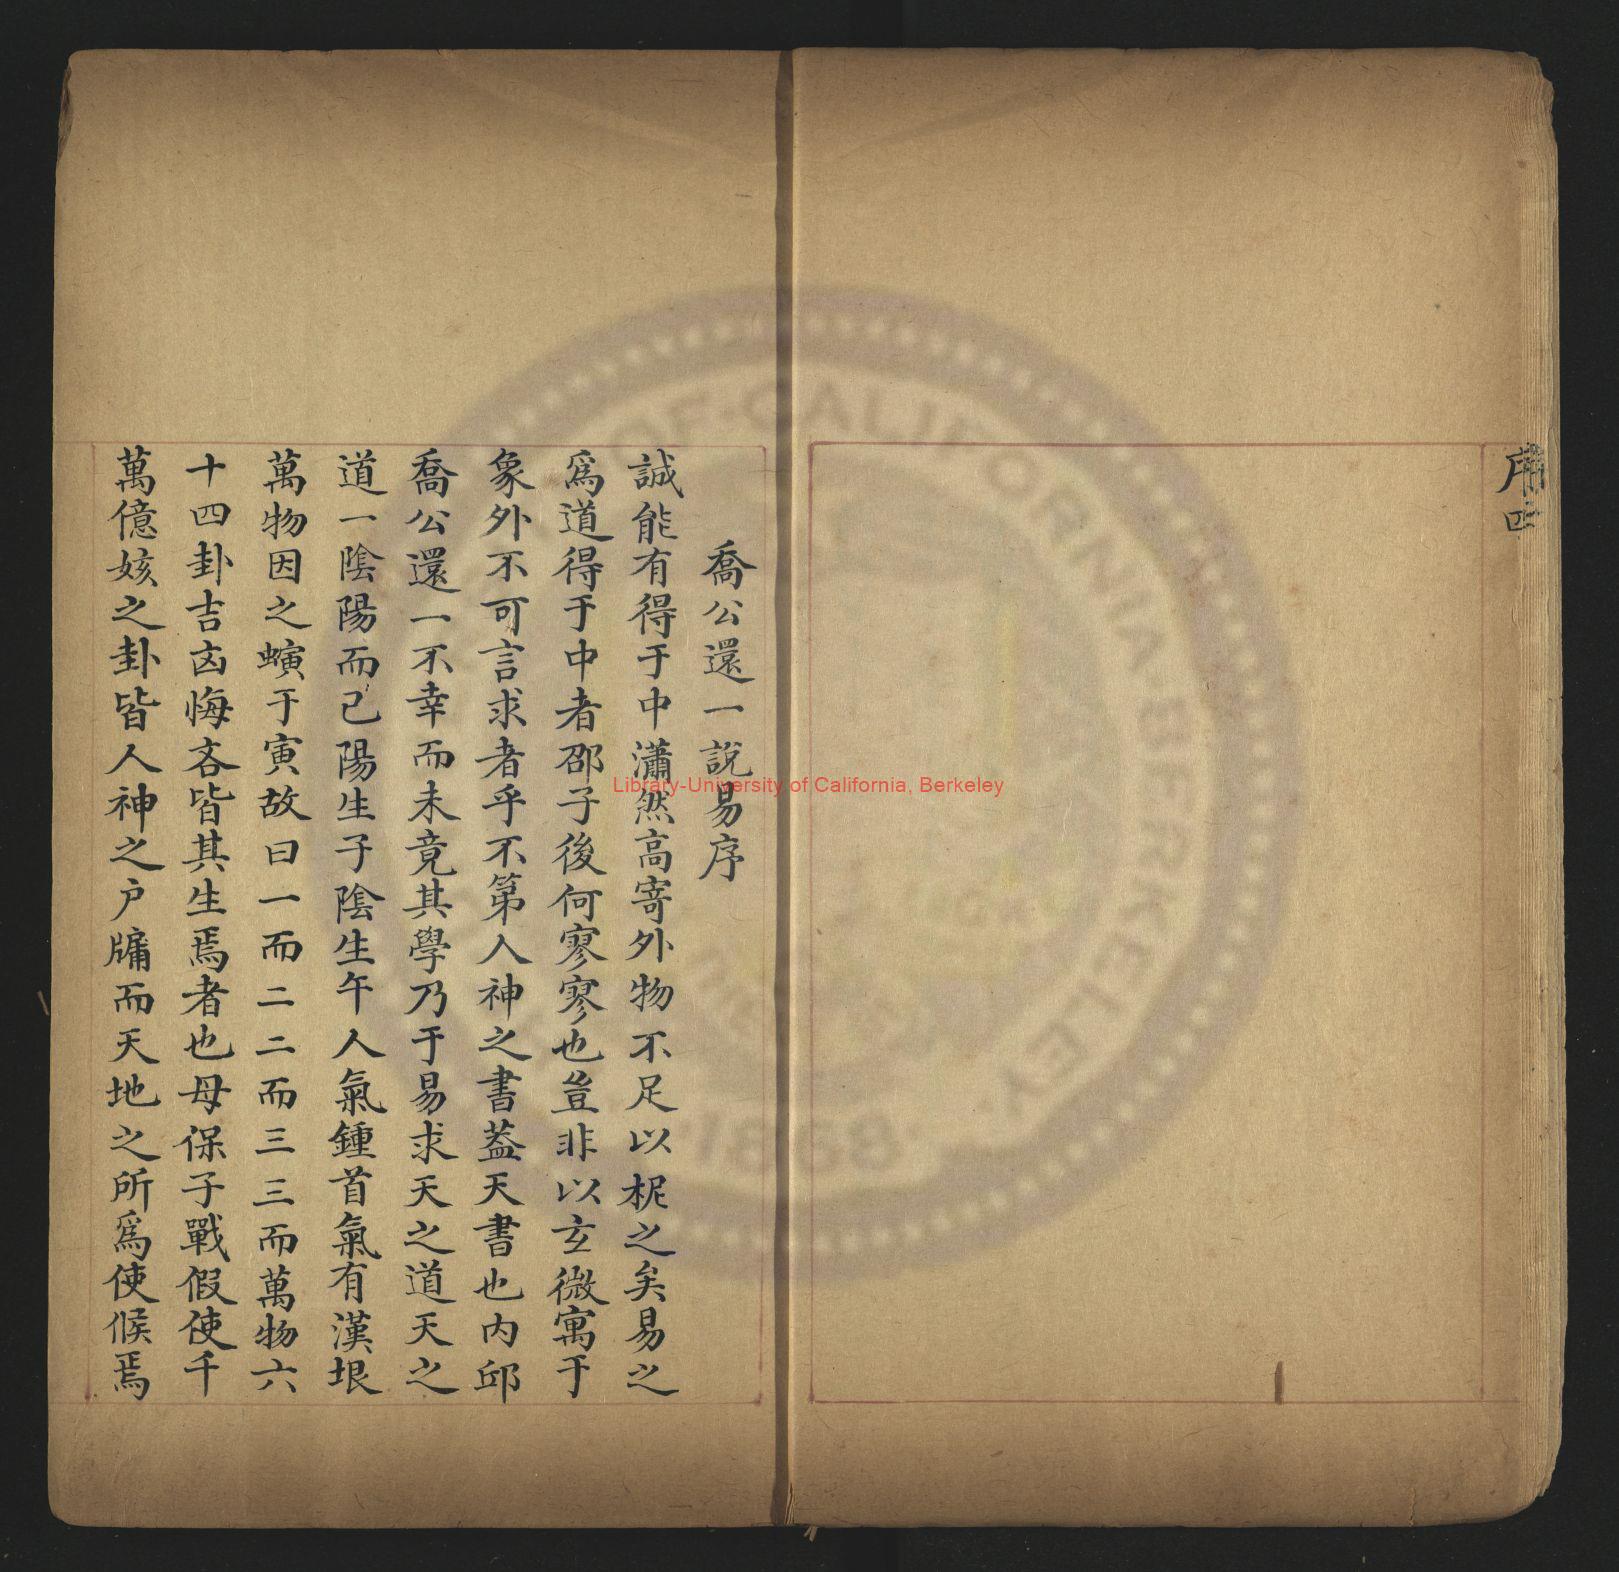 序四
喬公還一說易序
誠能有得于中瀟然高寄外物不足以柅之矣易之
爲道得于中者邵子後何寥寥也豈非以玄微寓于
象外不可言求者乎不第人神之書葢天書也内邱
喬公還一不幸而未竟其學乃于易求天之道天之
道一陰陽而已陽生子陰生午人氣鍾首氣有漢垠
萬物因之螾于寅故曰一而二二而三三而萬物六
十四卦吉凶悔吝皆其生焉者也母保子戰假使千
萬億姟之卦皆人神之户牖而天地之所爲使候焉
Library-University of California, Berkeley